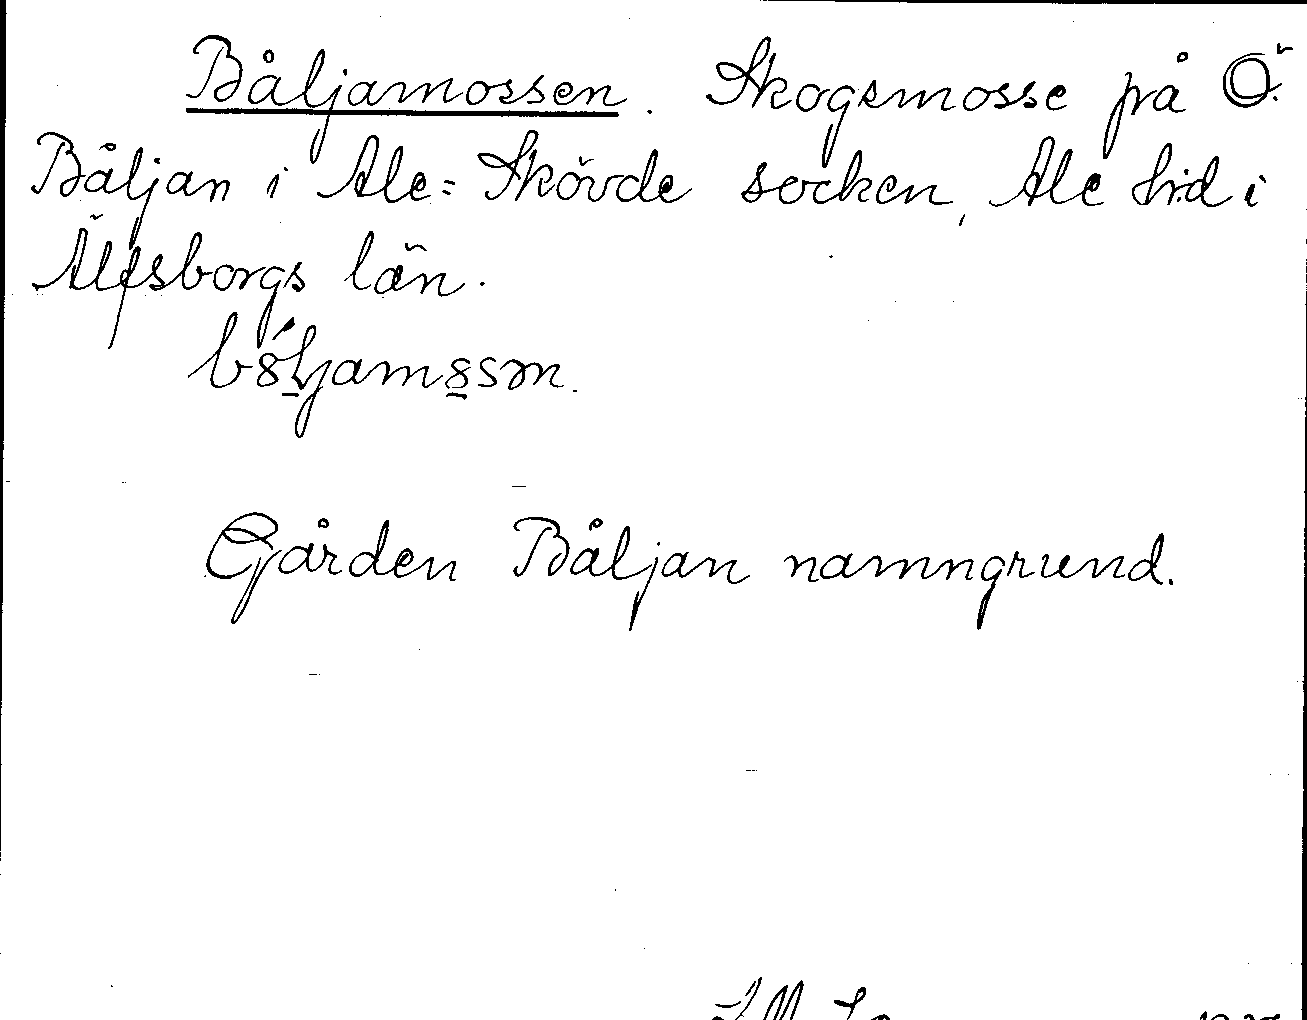 Båljamossen. Skogsmosse på Ö.
Båljan i Ale=Skövde socken, Ale hd i
Älfsborgs län.
Gården Båljan namngrund.